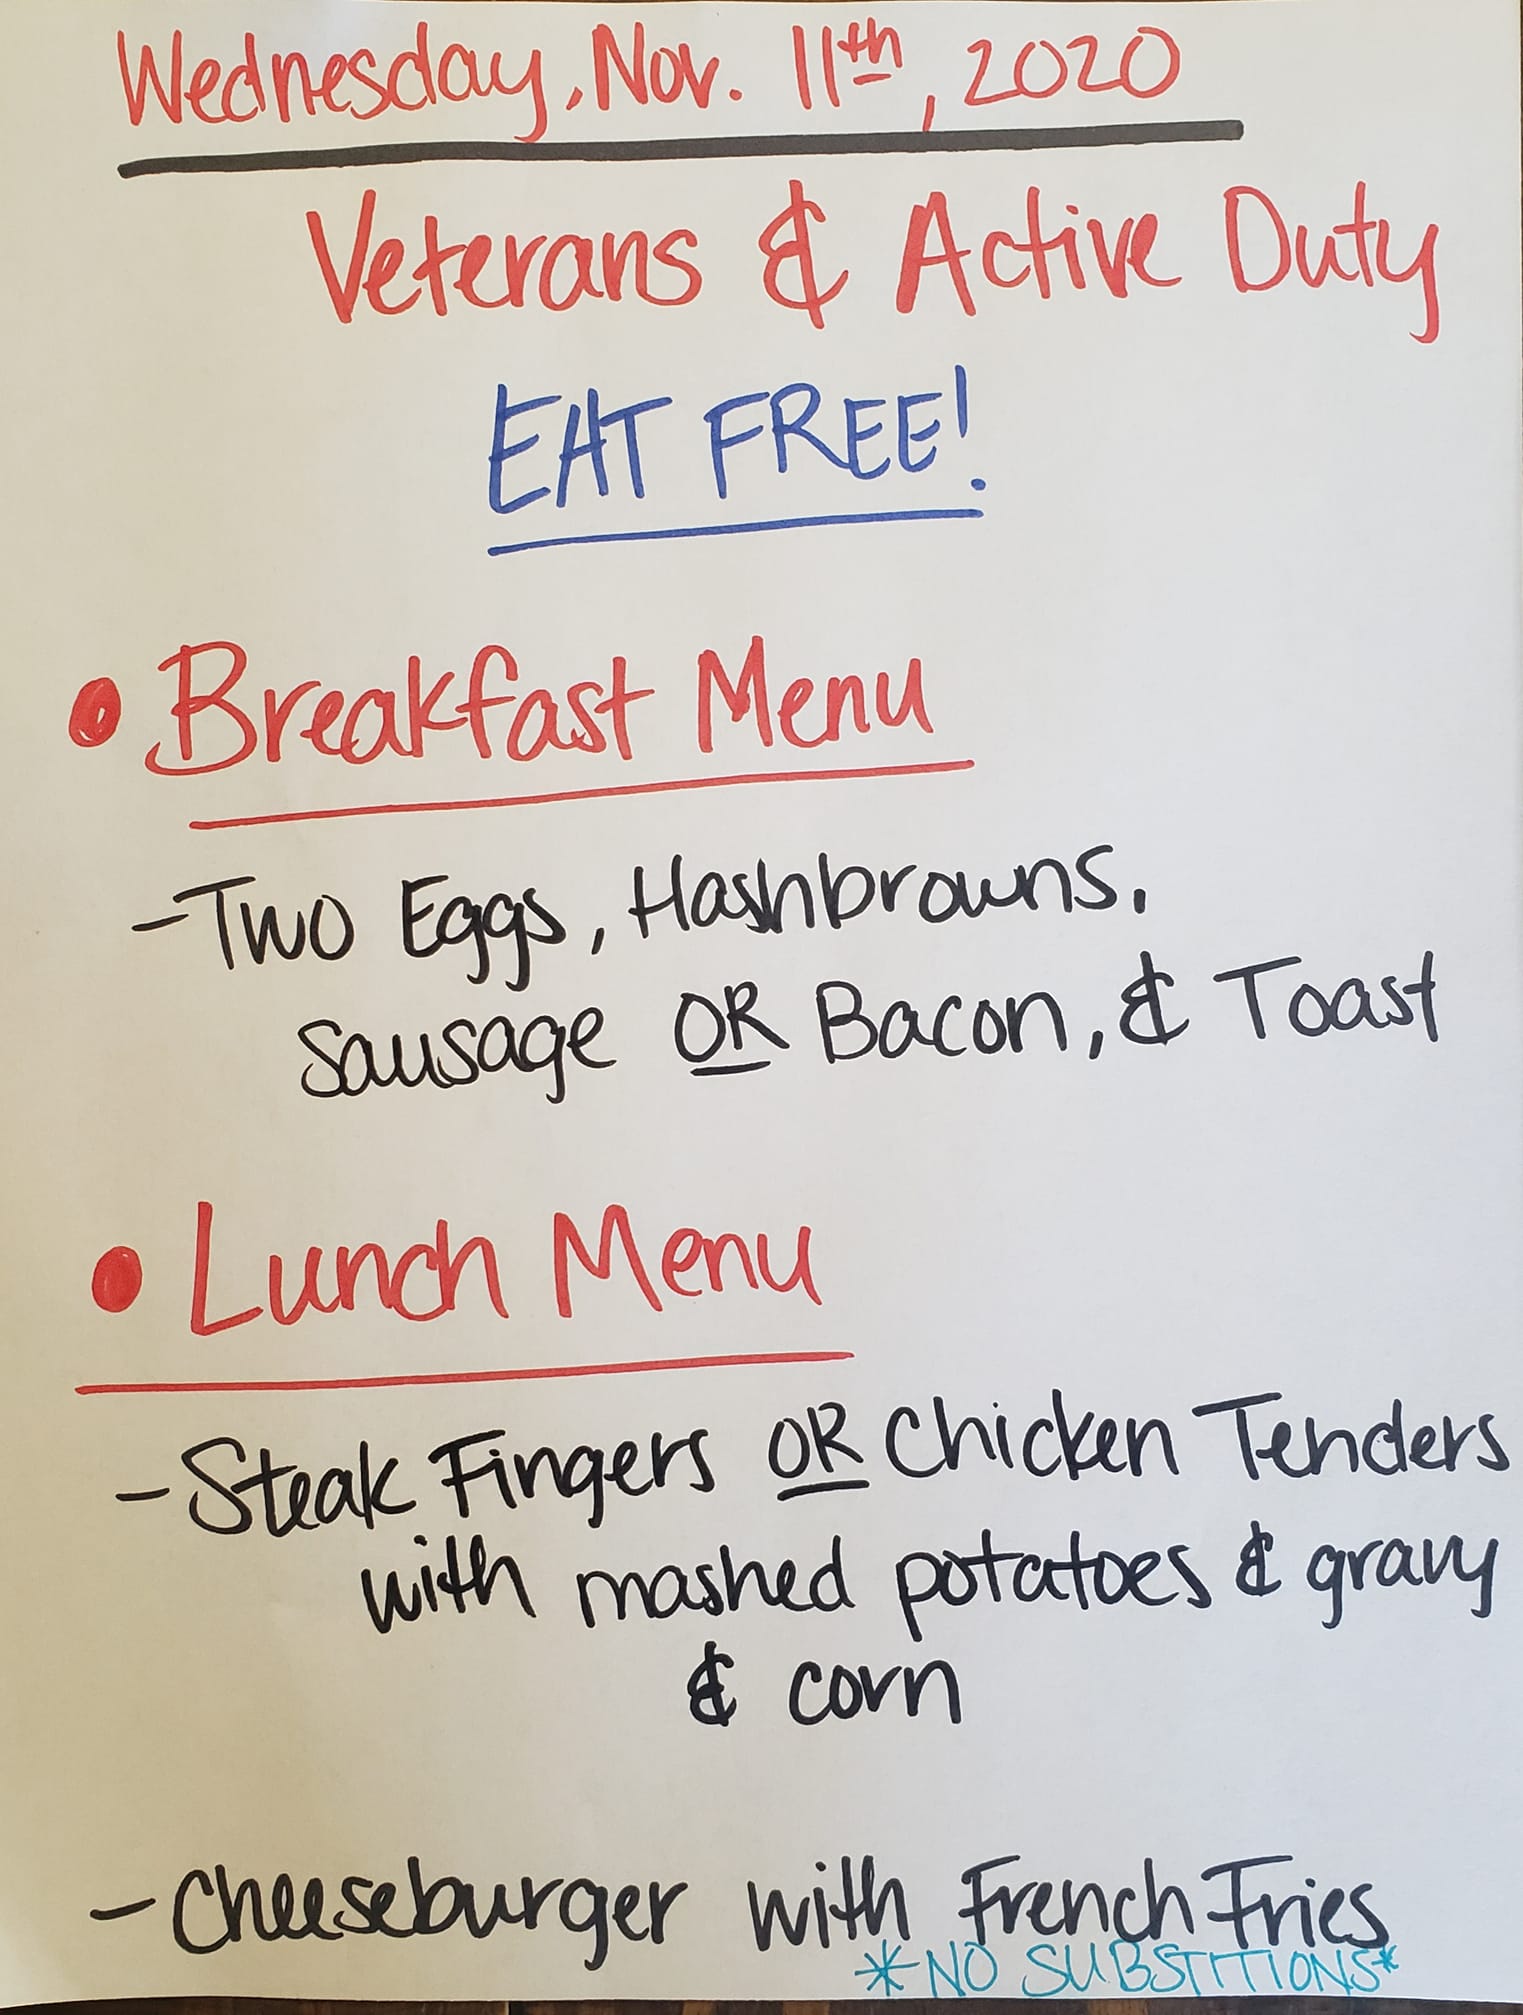 Wednesday, Nov. 11th, 2020
Veterans & Active Duty
EAT FREE!
• Breakfast Menu
- Two Eggs, Hashbrowns,
Sausage OR Bacon, & Toast
• Lunch Menu
- Steak Fingers OR Chicken Tenders
with mashed potatoes & gravy
& corn
- Cheeseburger with French Fries
*NO SUBSTITIONS*